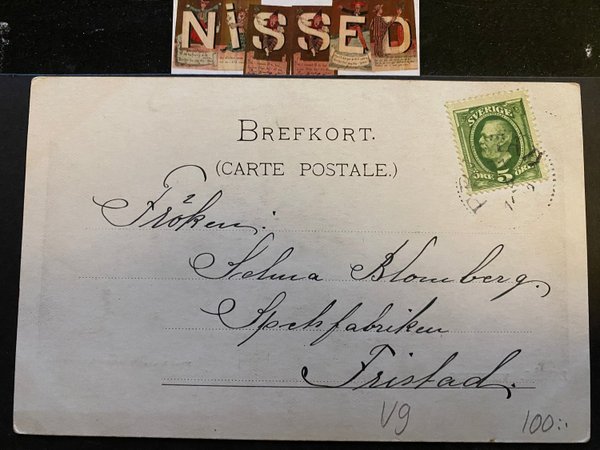 NiSSED
BREFKORT.
(CARTE POSTALE.)
SVERIGE
5
ÖRE ÖRE
Fröken:
Selma Blomberg.
Fristad.
V9
100:-